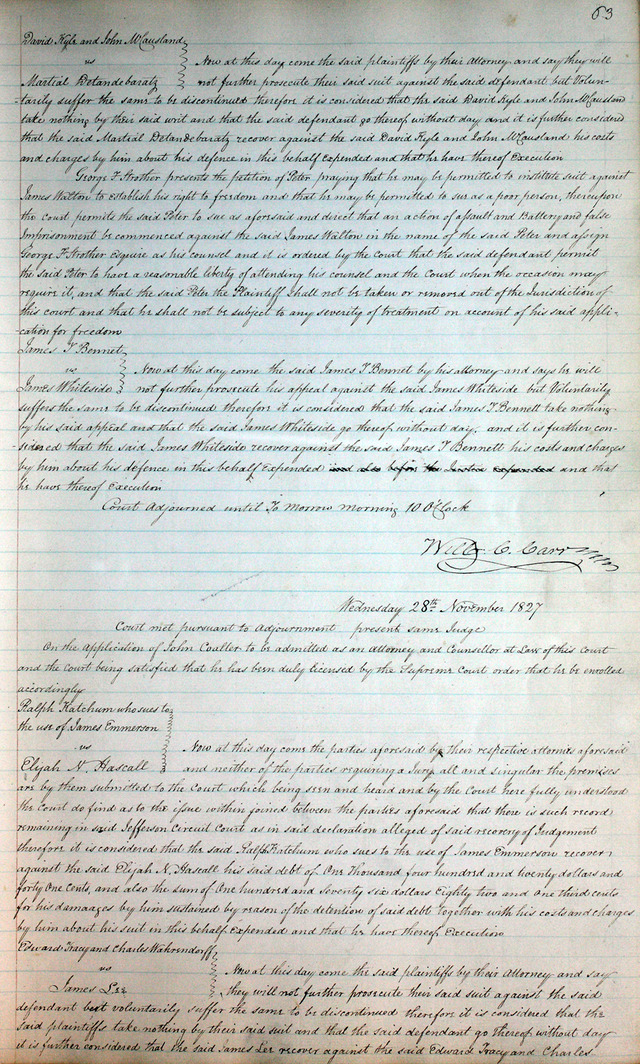 63
David Kyle and John McCausland
vs
Martial Detandebaratz
Now at this day come the said plaintiffs by their Attorney and say they will
not further prosecute their said suit against the said defendant but Volun-
-tarily suffer the same to be discontinued therefore it is considered that the said David Kyle and John McCausland
take nothing by their said writ and that the said defendant go thereof without day and it is further considered
that the said Martial Detandebaratz recover against the said David Kyle and John McCausland his costs
and charges by him about his defence in this behalf Expended and that he have thereof Execution
George F. Strother presents the petition of Peter praying that he may be permitted to institute suit against
James Walton to establish his right to freedom and that he may be permitted to sue as a poor person, thereupon
the Court permits the said Peter to sue as aforesaid and direct that an action of assault and Battery and false
Imprisonment be commenced against the said James Walton in the name of the said Peter and assign
George F. Strother Esquire as his counsel and it is ordered by the court that the said defendant permit
the said Peter to have a reasonable liberty of attending his counsel and the Court when the occasion may
require it, and that the said Peter the Plaintiff shall not be taken or removed out of the Jurisdiction of
this court and that he shall not be subject to any severity of treatment on account of his said appli-
-cation for freedom
James T Bennet
vs
James Whiteside
Now at this day come the said James T Bennet by his attorney and says he will
not further prosecute his appeal against the said James Whiteside but Voluntarily
suffers the same to be discontinued therefore it is considered that the said James T. Bennett take nothing
by his said appeal and that the said James Whiteside go thereof without day, and it is further con-
-sidered that the said James Whiteside recover against the said James T Bennett his costs and charges
by him about his defence in this behalf Expended and also before the Justice expended and that
he have thereof Execution
Court Adjourned until To Morrow morning 10 O'Clock
Will. C. Carr
Wednesday 28th November 1827
Court met pursuant to Adjournment present same Judge
On the Application of John Coalter to be admitted as an Attorney and Counsellor at Law of this Court
and the Court being satisfied that he has been duly licensed by the Supreme Court order that he be enrolled
accordingly
Ralph Ketchum who sues to
the use of James Emmerson
vs
Elijah N. Hascall
Now at this day come the parties aforesaid by their respective attornies aforesaid
and neither of the parties requiring a Jury all and singular the premises
are by them submitted to the Court which being seen and heard and by the Court here fully understood
the Court do find as to the issue within joined between the parties aforesaid that there is such record
remaining in said Jefferson Circuit Court as in said declaration alleged of said recovery of Judgement
therefore it is considered that the said Ralph Ketchum who sues to the use of James Emmerson recover
against the said Elijah N. Hascall his said debt of One thousand four hundred and twenty dollars and
forty One cents, and also the sum of One hundred and Seventy six dollars Eighty two and One third cents
for his damaages by him sustained by reason of the detention of said debt together with his costs and charges
by him about his suit in this behalf Expended and that he have thereof Execution
Edward Tracy and Charles Wahrendorff
vs
James Lee
Now at this day come the said plaintiffs by their Attorney and say
they will not further prosecute their said suit against the said
defendant but voluntarily suffer the same to be discontinued therefore it is considered that the
said plaintiffs take nothing by their said suit and that the said defendant go thereof without day
it is further considered that the said James Lee recover against the said Edward Tracy and Charles